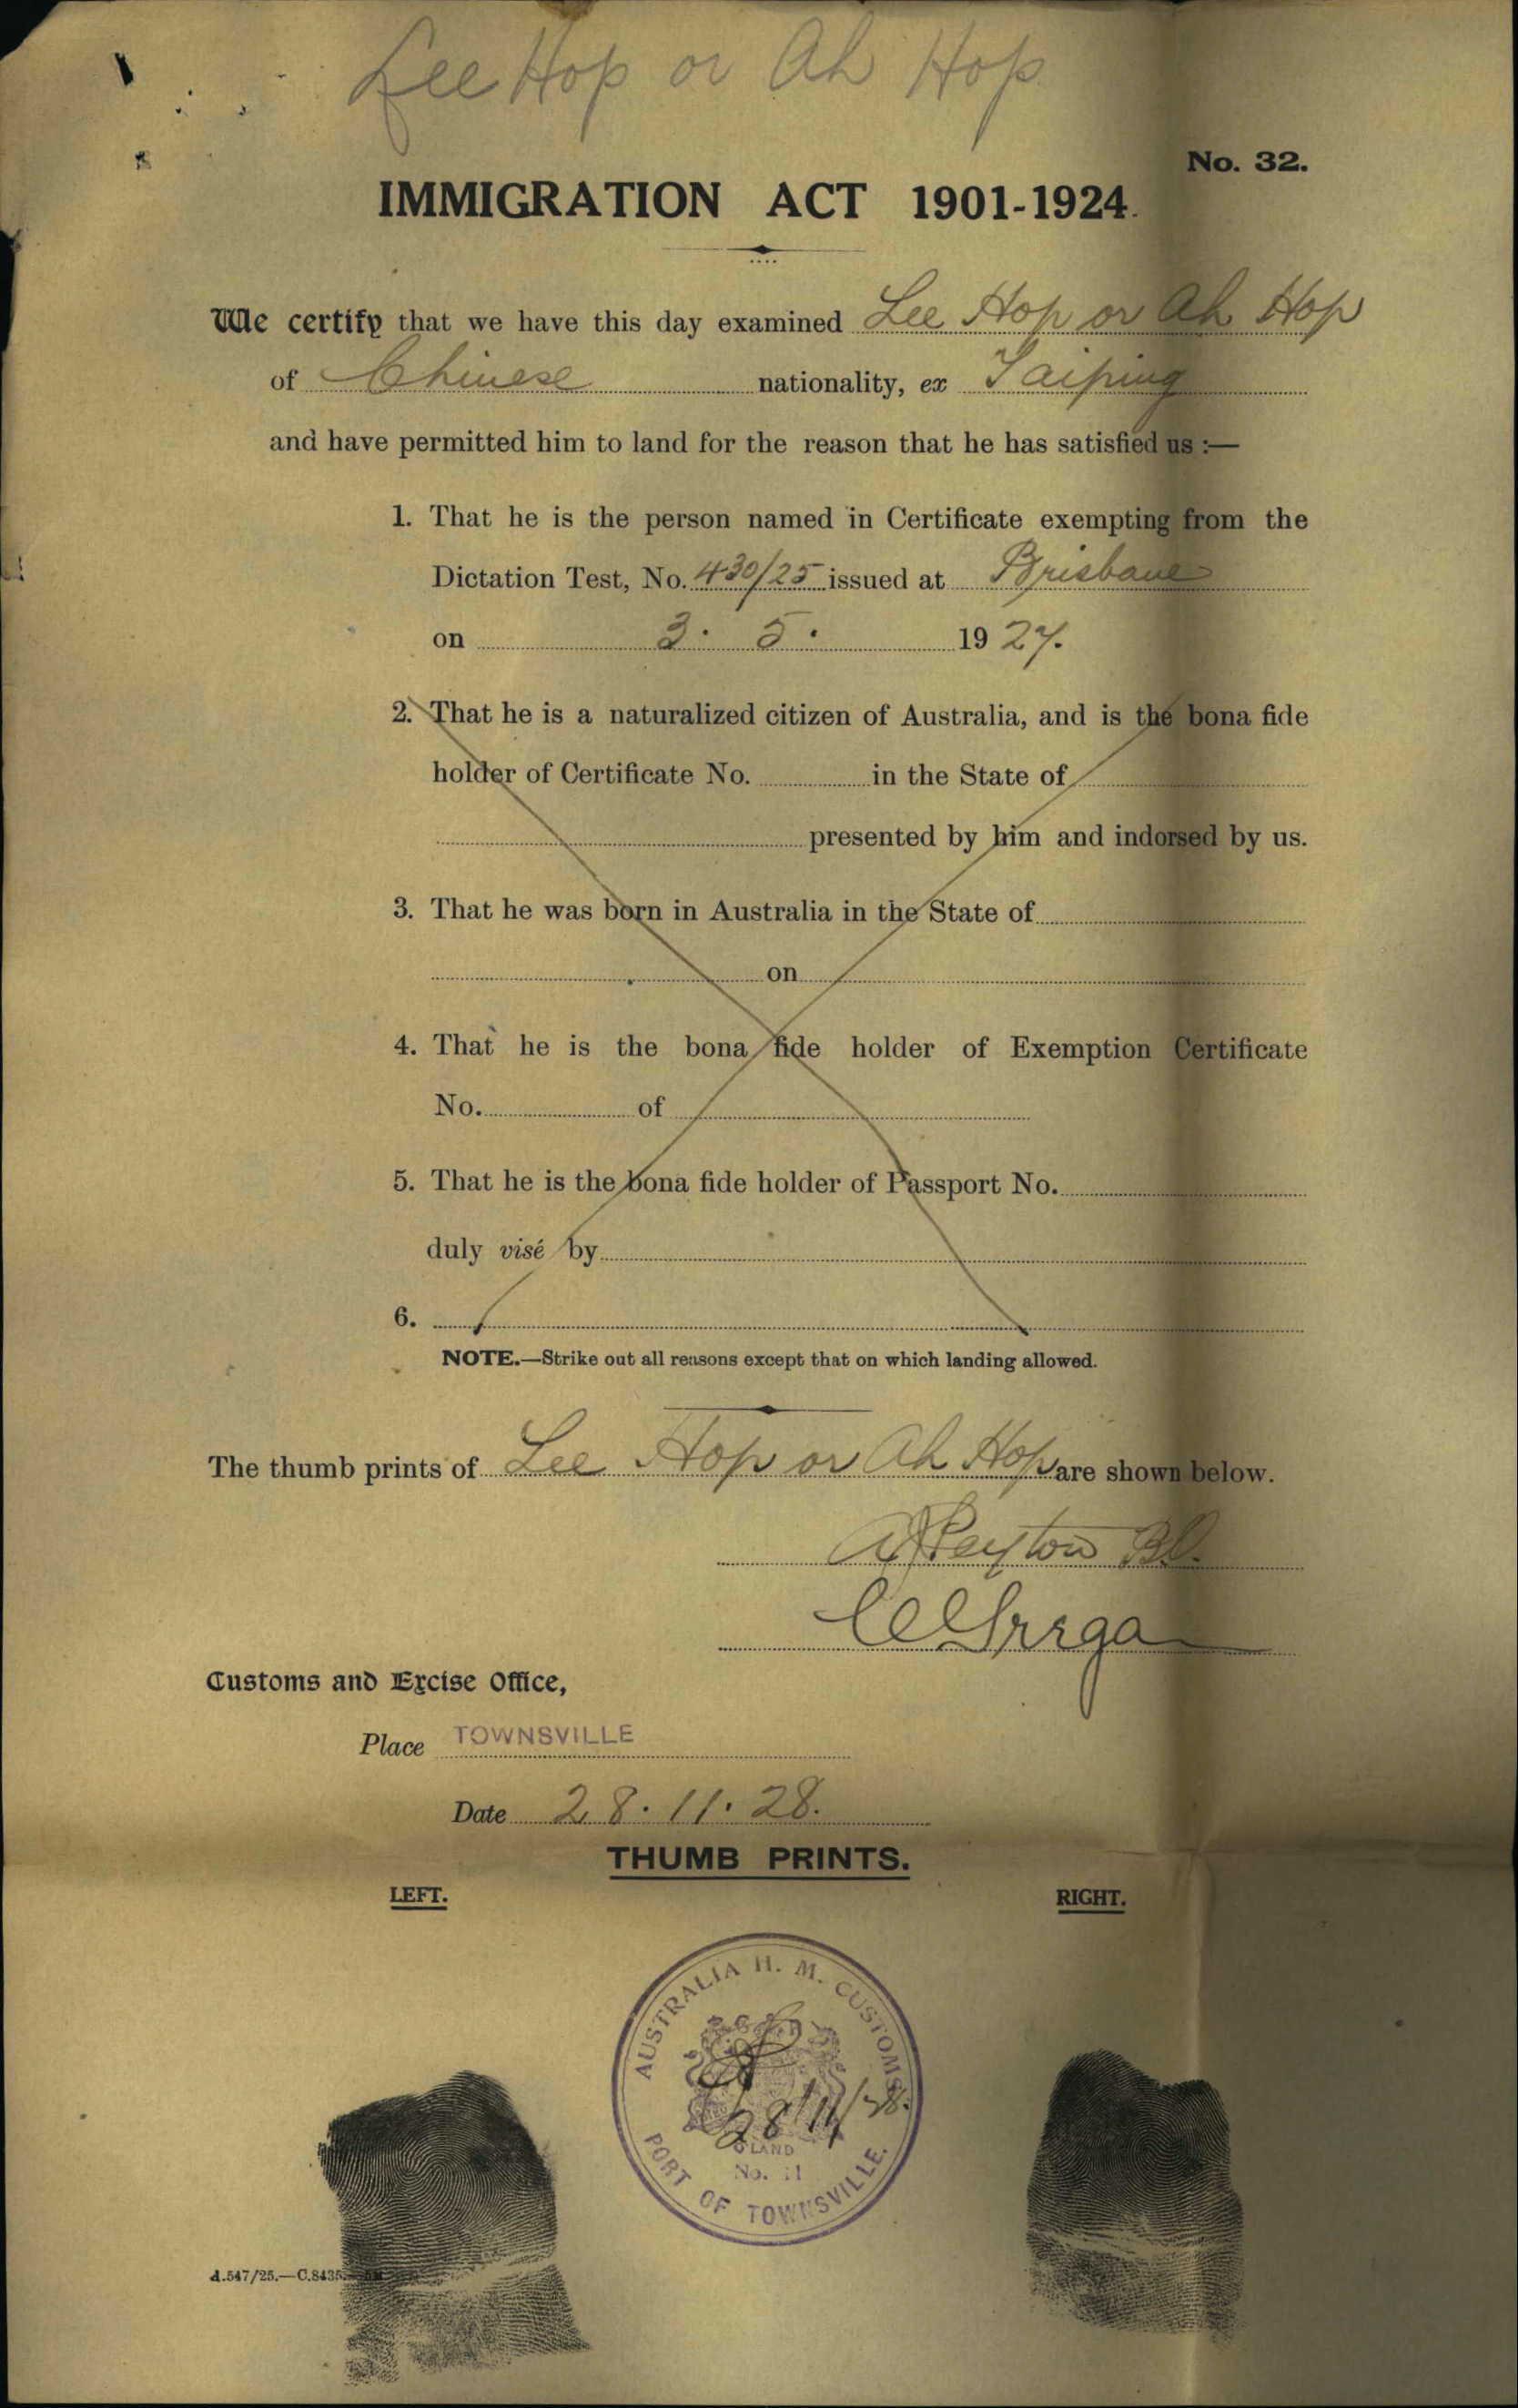 Lee Hop or Ah Hop
No. 32.
IMMIGRATION ACT 1901-1924.
We certify that we have this day examined Lee Hop or Ah Hop
of Chinese nationality, ex Taiping
and have permitted him to land for the reason that he has satisfied us :—
1. That he is the person named in Certificate exempting from the
Dictation Test, No. 430/25 issued at Brisbane
on 3. 5. 1927.
2. That he is a naturalized citizen of Australia, and is the bona fide
holder of Certificate No. in the State of
presented by him and indorsed by us.
3. That he was born in Australia in the State of
on
4. That he is the bona fide holder of Exemption Certificate
No. of
5. That he is the bona fide holder of Passport No.
duly visé by
6.
NOTE.—Strike out all reasons except that on which landing allowed.
The thumb prints of Lee Hop or Ah Hop are shown below.
Customs and Excise Office,
Place TOWNSVILLE
Date 28.11.28.
THUMB PRINTS.
LEFT.
RIGHT.
AUSTRALIA H. M. CUSTOMS
28/11/28.
No. 11
PORT OF TOWNSVILLE.
A.547/25.—C.8435.